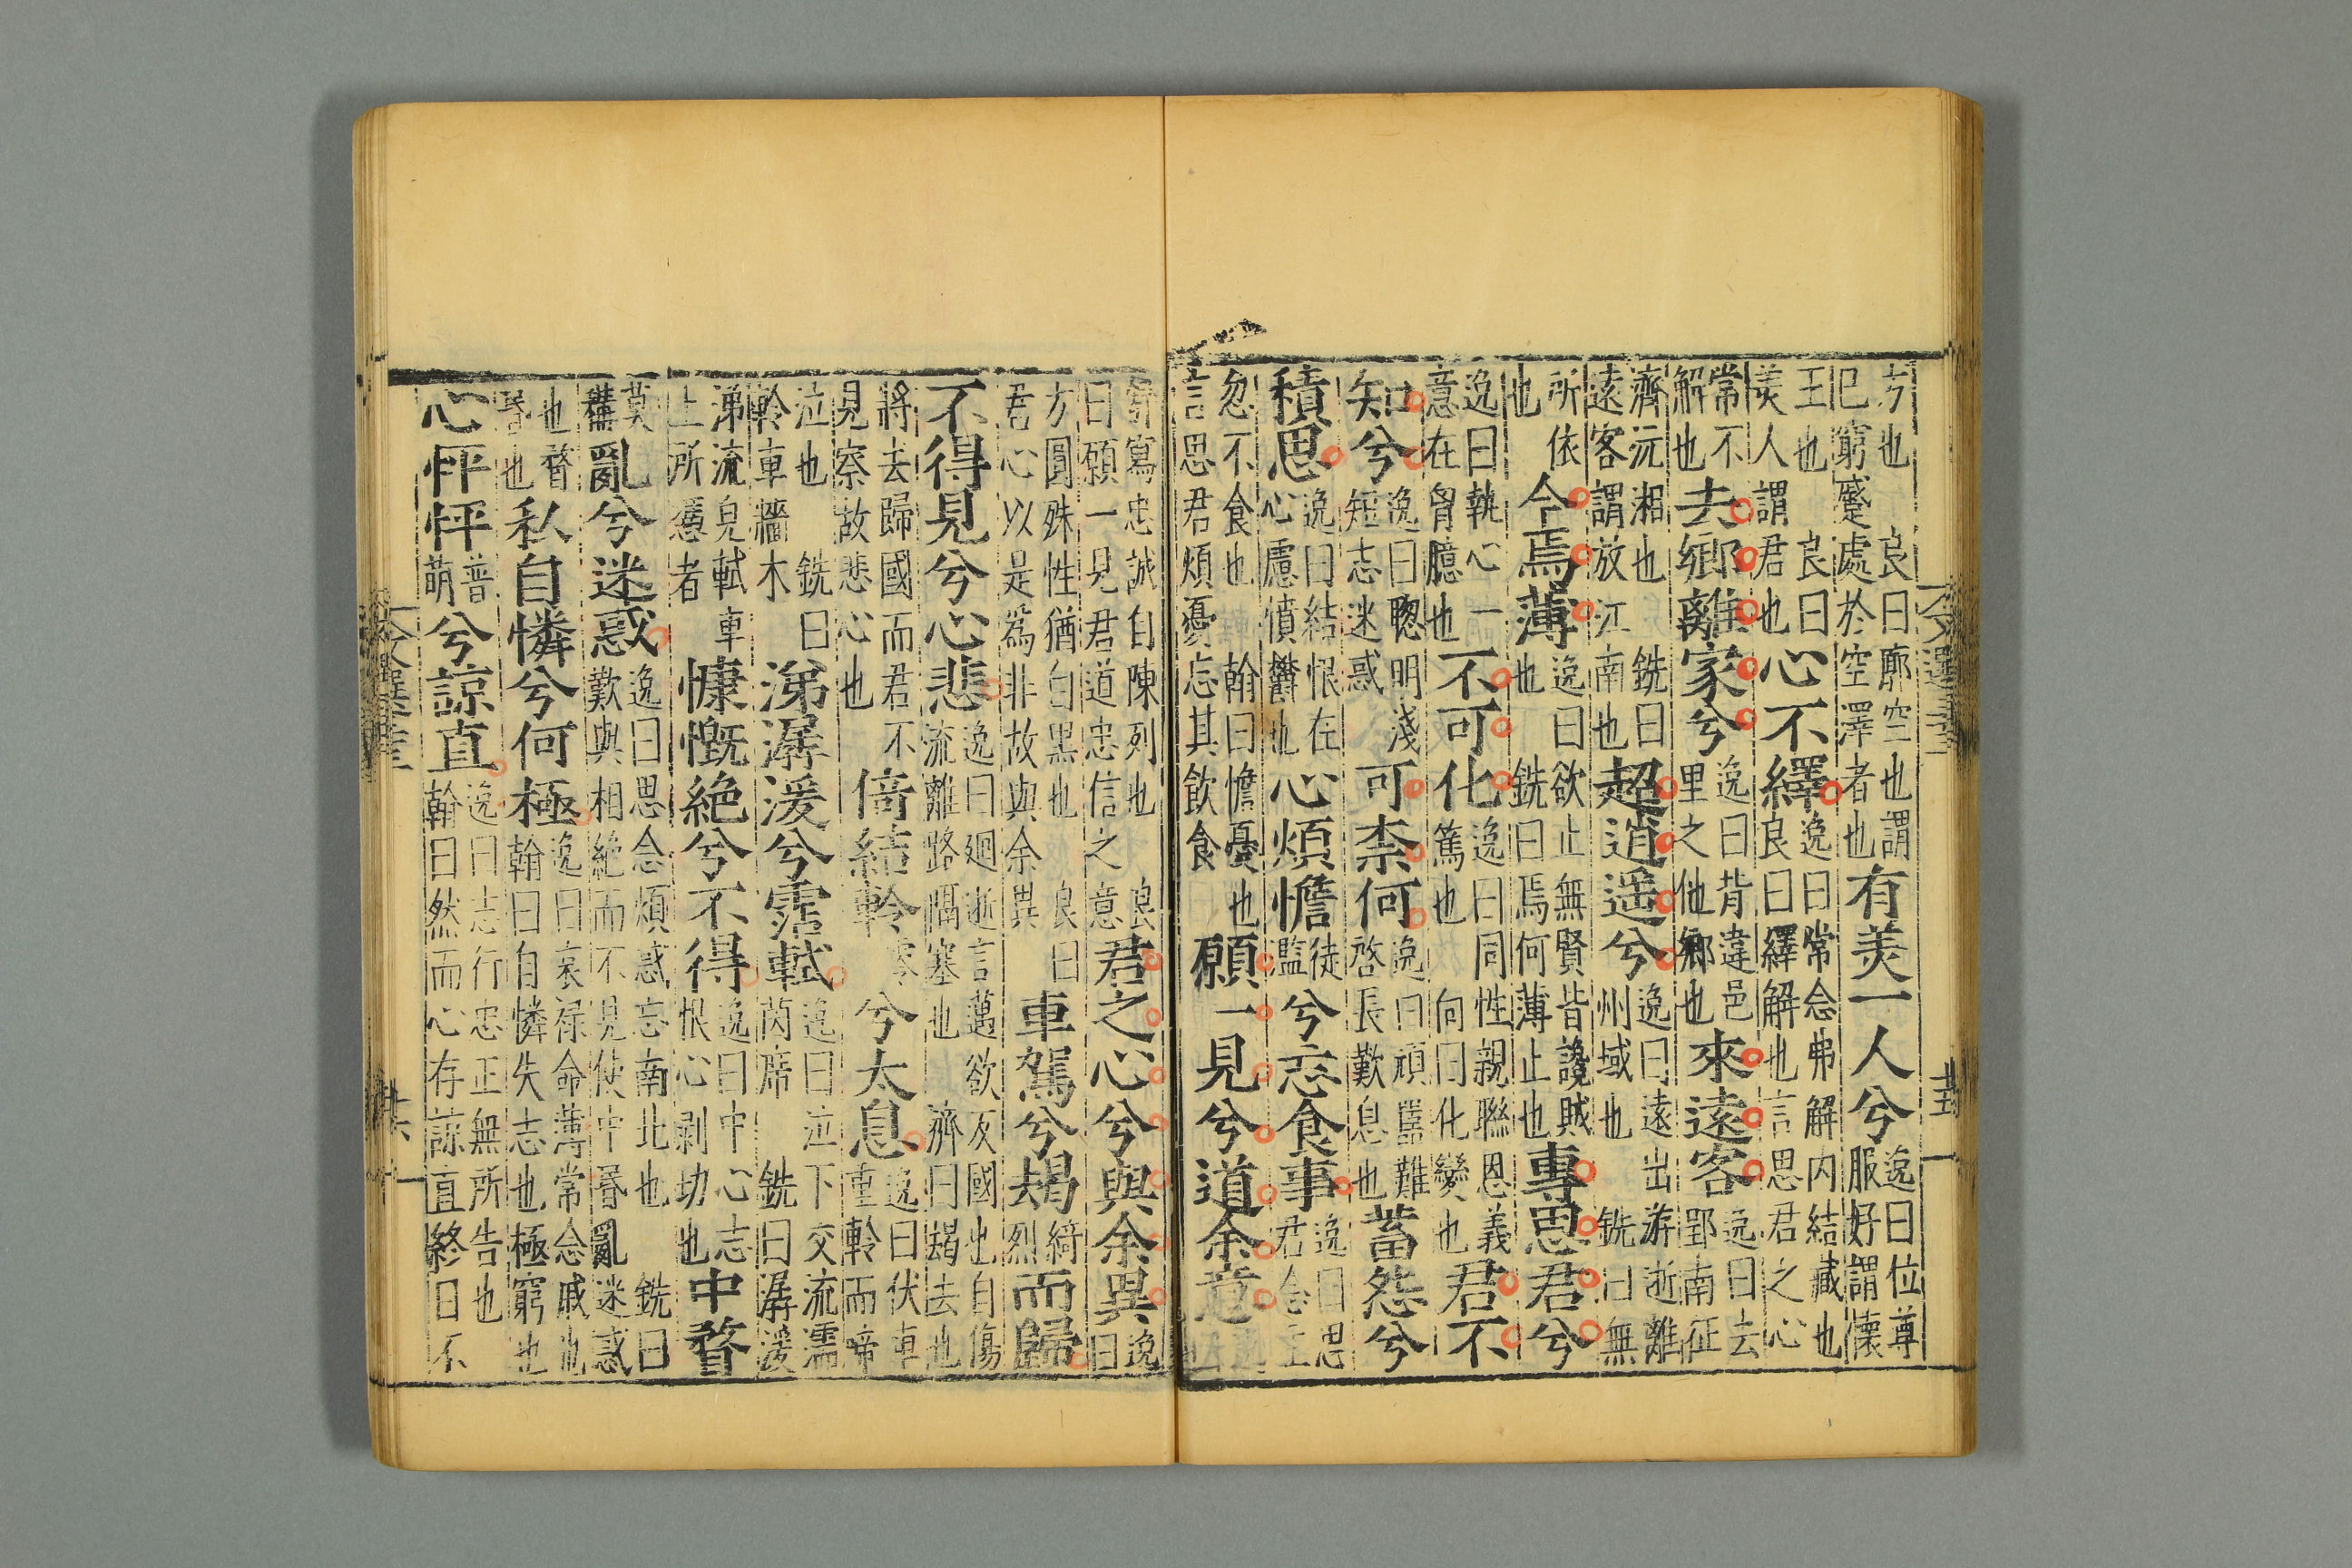 文選卷三十三 廿五
方也 良曰廓空也謂已窮蹙處於空澤者也有美一人兮逸曰位尊服好謂懷
王也 良曰美人謂君也心不繹逸曰常念弗解内結藏也良曰繹解也言思君之心
常不解也去鄉離家兮逸曰背違邑里之他鄉也來遠客逸曰去郢南征
濟沅湘也 銑曰遠客謂放江南也超逍遥兮逸曰遠出游逝離州域也 銑曰無
所依也今焉薄逸曰欲止無賢皆讒賊也 銑曰焉何薄止也專思君兮
逸曰執心一意在胷臆也不可化逸曰同性親聯恩義篤也 向曰化變也君不
知兮逸曰聦明淺短志迷惑可柰何逸曰頑嚚難啓長歎息也蓄怨兮
積思逸曰結恨在心慮憤鬱也心煩憺徒濫兮忘食事逸曰思君念王
忽不食也 翰曰憺憂也信思君煩憂忘其飲食願一見兮道余意
舒寫忠誠自陳列也 良曰願一見君道忠信之意君之心兮與余異逸曰
方圓殊性猶白黒也 良曰君心以是爲非故與余異車駕兮朅綺烈而歸
不得見兮心悲逸曰迴逝言邁欲反國出自傷流離路隔塞也 濟曰朅去也
將去歸國而君不見察故悲心也倚結軨零兮太息逸曰伏車重軨而啼
泣也 銑曰軨車轖木涕潺湲兮霑軾逸曰泣下交流濡茵席 銑曰潺湲
涕流皃軾車上所憑者慷慨絶兮不得逸曰中心志恨心剥切也中瞀
莫構亂兮迷惑逸曰思念煩惑忘南北也 銑曰歎與相絶而不見使中昬亂迷惑
也瞀昬也私自憐兮何極逸曰哀禄命薄常念戚也翰曰自憐失志也極窮也
心怦怦普萌兮諒直逸曰志行忠正無所告也翰曰然而心存諒直終日不